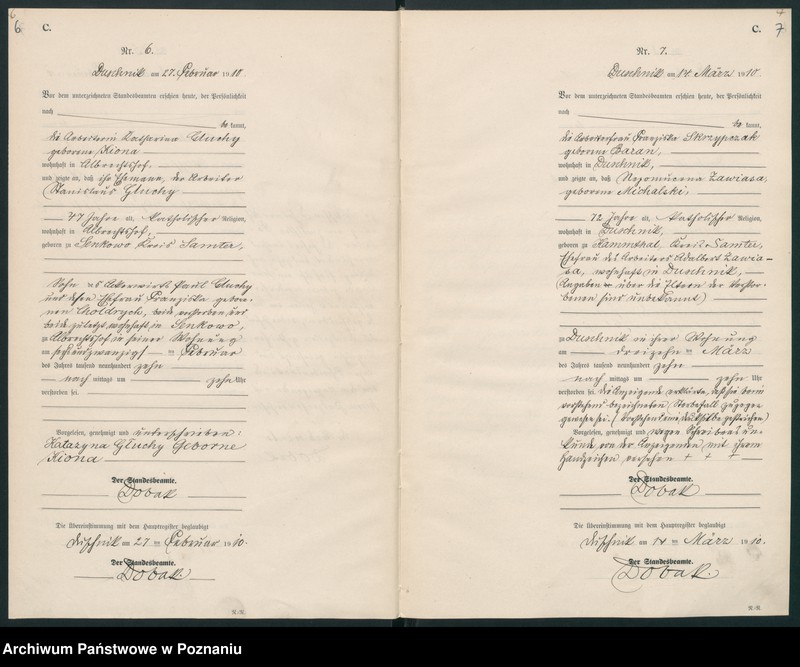 6
C.
Nr. 6.
Duschnik am 27. Februar 1910.
Vor dem unterzeichneten Standesbeamten erschien heute, der Persönlichkeit
nach
be kannt,
die Arbeiterin Katharina Gluchy
geborene Kiona
wohnhaft in Albrechtshof,
und zeigte an, daß ihr Ehemann, der Arbeiter
Stanislaus Gluchy
47 Jahre alt, katholischer Religion,
wohnhaft in Albrechtshof,
geboren zu Senkowo Kreis Samter,
Sohn des Ackerwirts Paul Gluchy
und dessen Ehefrau Franziska gebore-
nen beide verstorben und
beide zuletzt wohnhaft in Senkowo,
zu Albrechtshof in seiner Wohnung
am sechsundzwanzigsten Februar
des Jahres tausend neunhundert zehn
nach mittags um zehn Uhr
verstorben sei.
Vorgelesen, genehmigt und unterschrieben:
Katarzyna Głuchy Geborne
Kiona
Der Standesbeamte.
Dobak
Die Übereinstimmung mit dem Hauptregister beglaubigt
Duschnik am 27 ten Februar 1910.
Der Standesbeamte.
Dobak.
R.-R.
7
C.
Nr. 7.
Duschnik am 14. März 1910.
Vor dem unterzeichneten Standesbeamten erschien heute, der Persönlichkeit
nach
be kannt,
die Arbeiterfrau Franziska Skrzypczak
geborene Baran,
wohnhaft in Duschnik,
und zeigte an, daß Nepomucena Zawiasa,
geborene Michalski,
72 Jahre alt, katholischer Religion,
wohnhaft in Duschnik,
geboren zu Kammthal, Kreis Samter,
Ehefrau des Arbeiters Adalbert Zawia-
sa, wohnhaft in Duschnik,
(Angaben über die Eltern der Verstor-
benen sind unbekannt)
zu Duschnik in ihrer Wohnung
am dreizehn ten März
des Jahres tausend neunhundert zehn
nach mittags um zehn Uhr
verstorben sei. Die Anzeigende erklärte, daß sie beim
vorstehend bezeichneten Sterbefall zugegen
gewesen sei. (Vorstehend ein Druckfeld gestrichen)
Vorgelesen, genehmigt und wegen Schreibens un-
kunde von der Anzeigenden mit ihrem
Handzeichen versehen + + +
Der Standesbeamte.
Dobak
Die Übereinstimmung mit dem Hauptregister beglaubigt
Duschnik am 14 ten März 1910.
Der Standesbeamte.
Dobak.
R.-R.
Archiwum Państwowe w Poznaniu